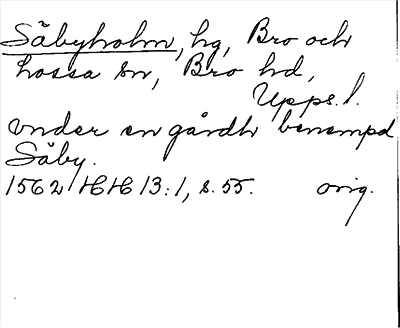 Säbyholm, hg, Bro och
Lossa sn, Bro hd,
Upps.l.
vnder en gårdh benempd
Säby.
1562 HH 13:1, s. 55. orig.